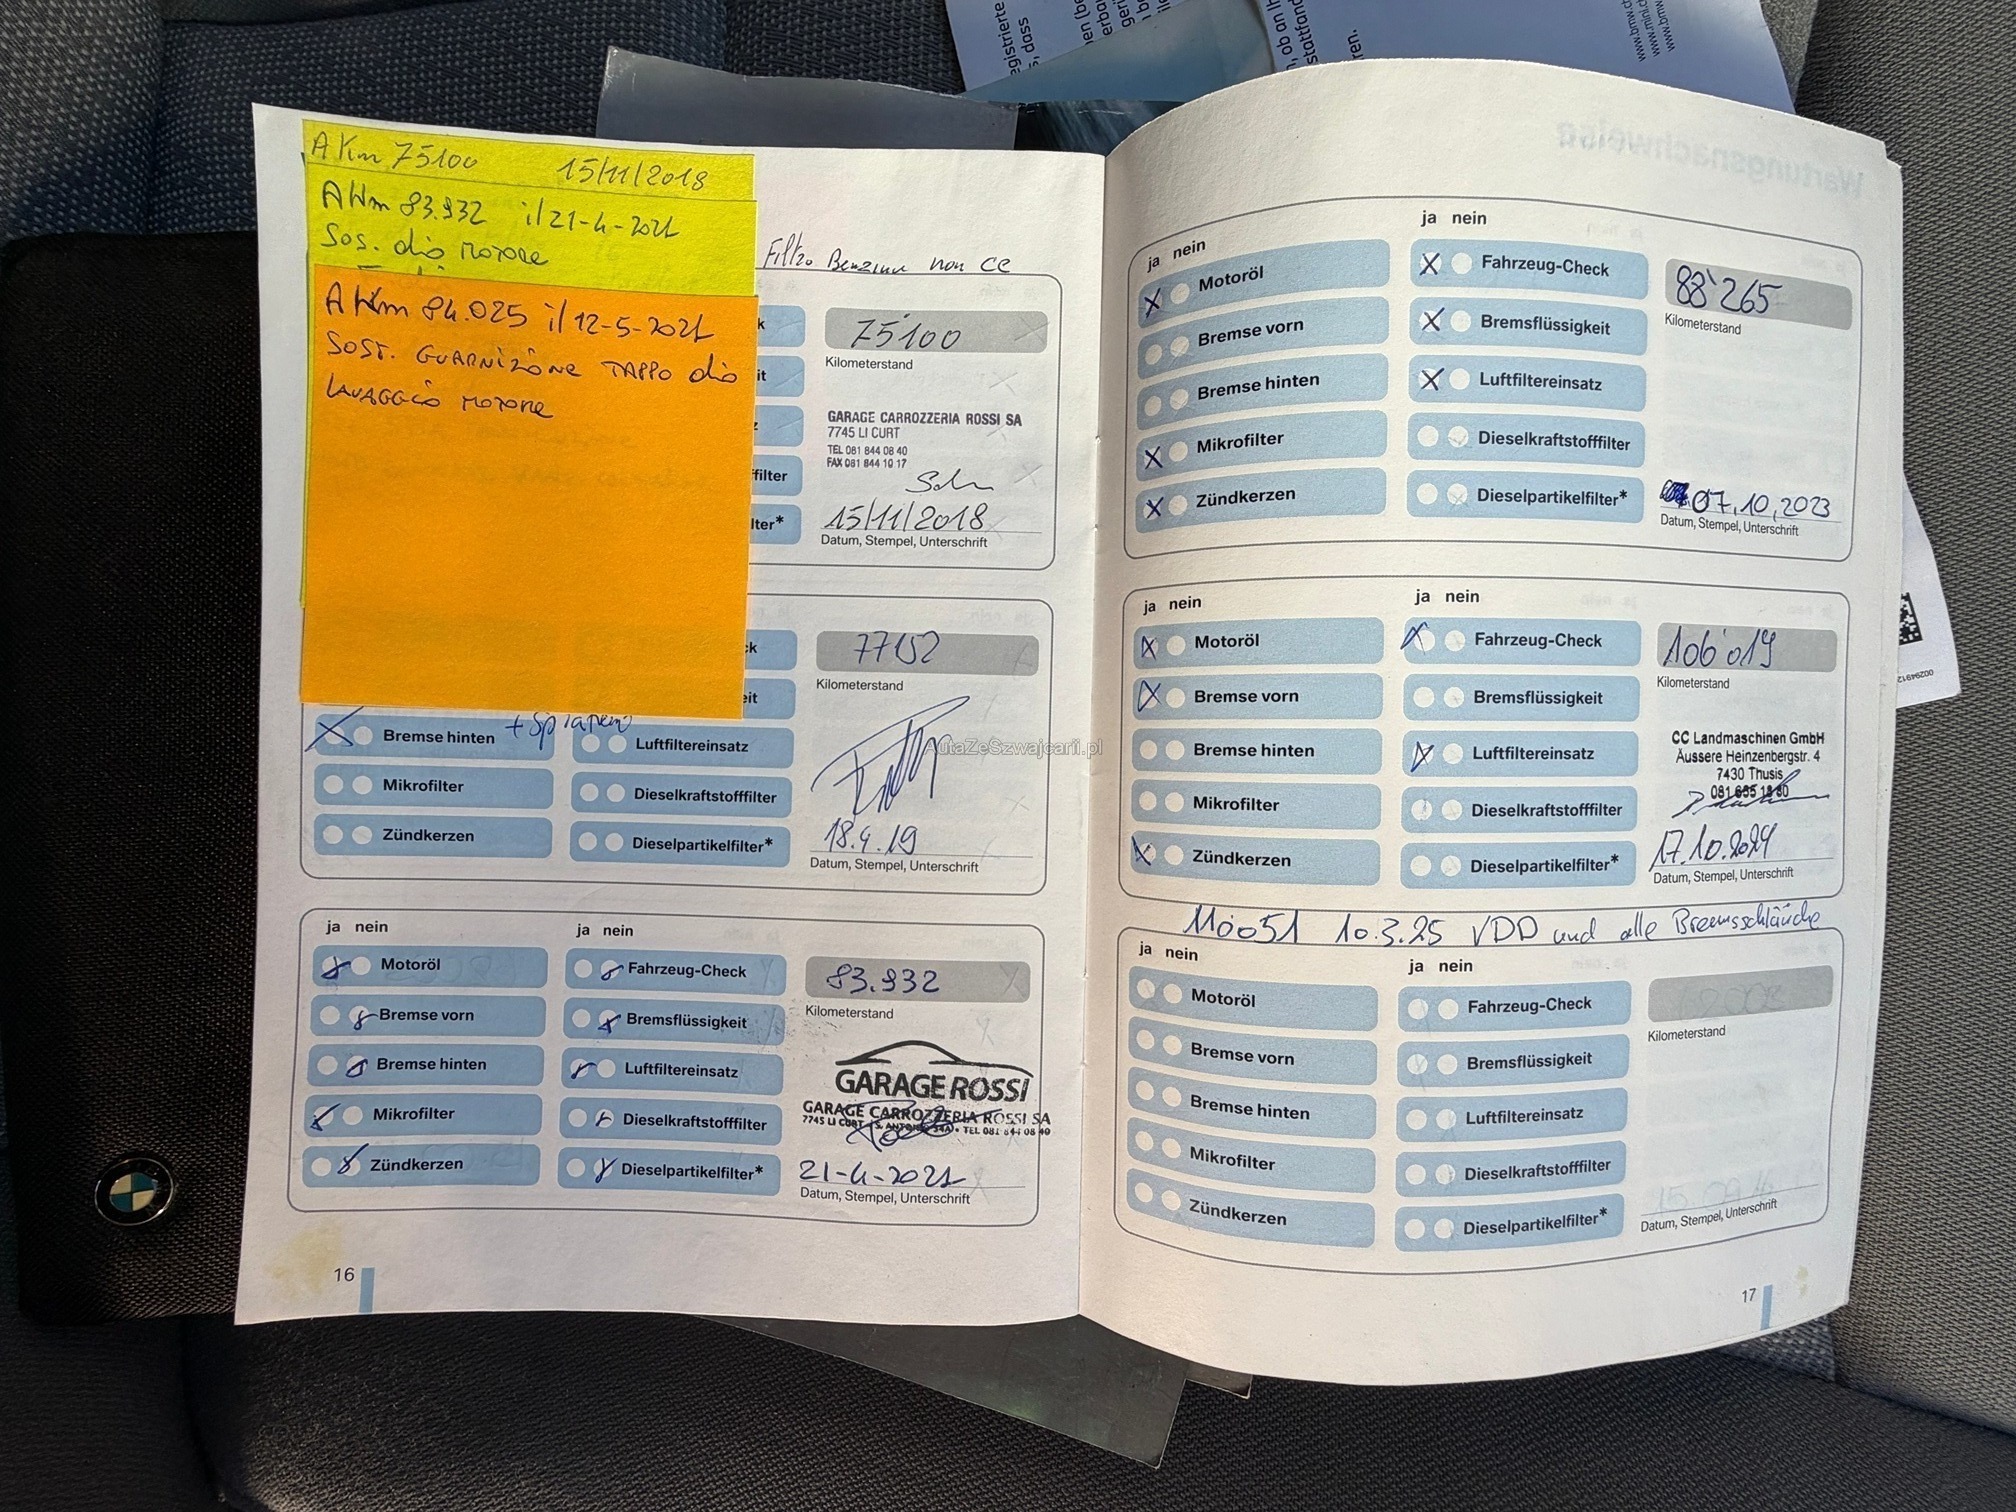 A Km 75100 15/11/2018
A Km 83.932 il 21-4-2021
Sos. olio motore
A Km 84.025 il 12-5-2021
SOST. GUARNIZIONE TAPPO olio
LAVAGGIO MOTORE
Filtro Benzina non CE
75'100
Kilometerstand
GARAGE CARROZZERIA ROSSI SA
7745 LI CURT
TEL 081 844 08 40
FAX 081 844 10 17
filter
lter*
15/11/2018
Datum, Stempel, Unterschrift
77152
Kilometerstand
Bremse hinten
Luftfiltereinsatz
Mikrofilter
Dieselkraftstofffilter
Zündkerzen
Dieselpartikelfilter*
18.4.19
Datum, Stempel, Unterschrift
ja nein
ja nein
Motoröl
Fahrzeug-Check
83.932
Kilometerstand
Bremse vorn
Bremsflüssigkeit
Bremse hinten
Luftfiltereinsatz
Mikrofilter
Dieselkraftstofffilter
Zündkerzen
Dieselpartikelfilter*
GARAGE ROSSI
GARAGE CARROZZERIA ROSSI SA
7745 LI CURT • S. ANTONIO 34A • TEL 081 844 08 40
21-4-2021
Datum, Stempel, Unterschrift
16
AutaZeSzwajcarii.pl
Wartungsnachweise
ja nein
ja nein
Motoröl
Fahrzeug-Check
88'265
Kilometerstand
Bremse vorn
Bremsflüssigkeit
Bremse hinten
Luftfiltereinsatz
Mikrofilter
Dieselkraftstofffilter
Zündkerzen
Dieselpartikelfilter*
07.10.2023
Datum, Stempel, Unterschrift
ja nein
ja nein
Motoröl
Fahrzeug-Check
106'019
Kilometerstand
Bremse vorn
Bremsflüssigkeit
Bremse hinten
Luftfiltereinsatz
Mikrofilter
Dieselkraftstofffilter
Zündkerzen
Dieselpartikelfilter*
CC Landmaschinen GmbH
Äussere Heinzenbergstr. 4
7430 Thusis
081 655 18 80
17.10.2024
Datum, Stempel, Unterschrift
110051 10.3.25 VDD und alle Bremsschläuche
ja nein
ja nein
Motoröl
Fahrzeug-Check
Kilometerstand
Bremse vorn
Bremsflüssigkeit
Bremse hinten
Luftfiltereinsatz
Mikrofilter
Dieselkraftstofffilter
Zündkerzen
Dieselpartikelfilter*
Datum, Stempel, Unterschrift
17